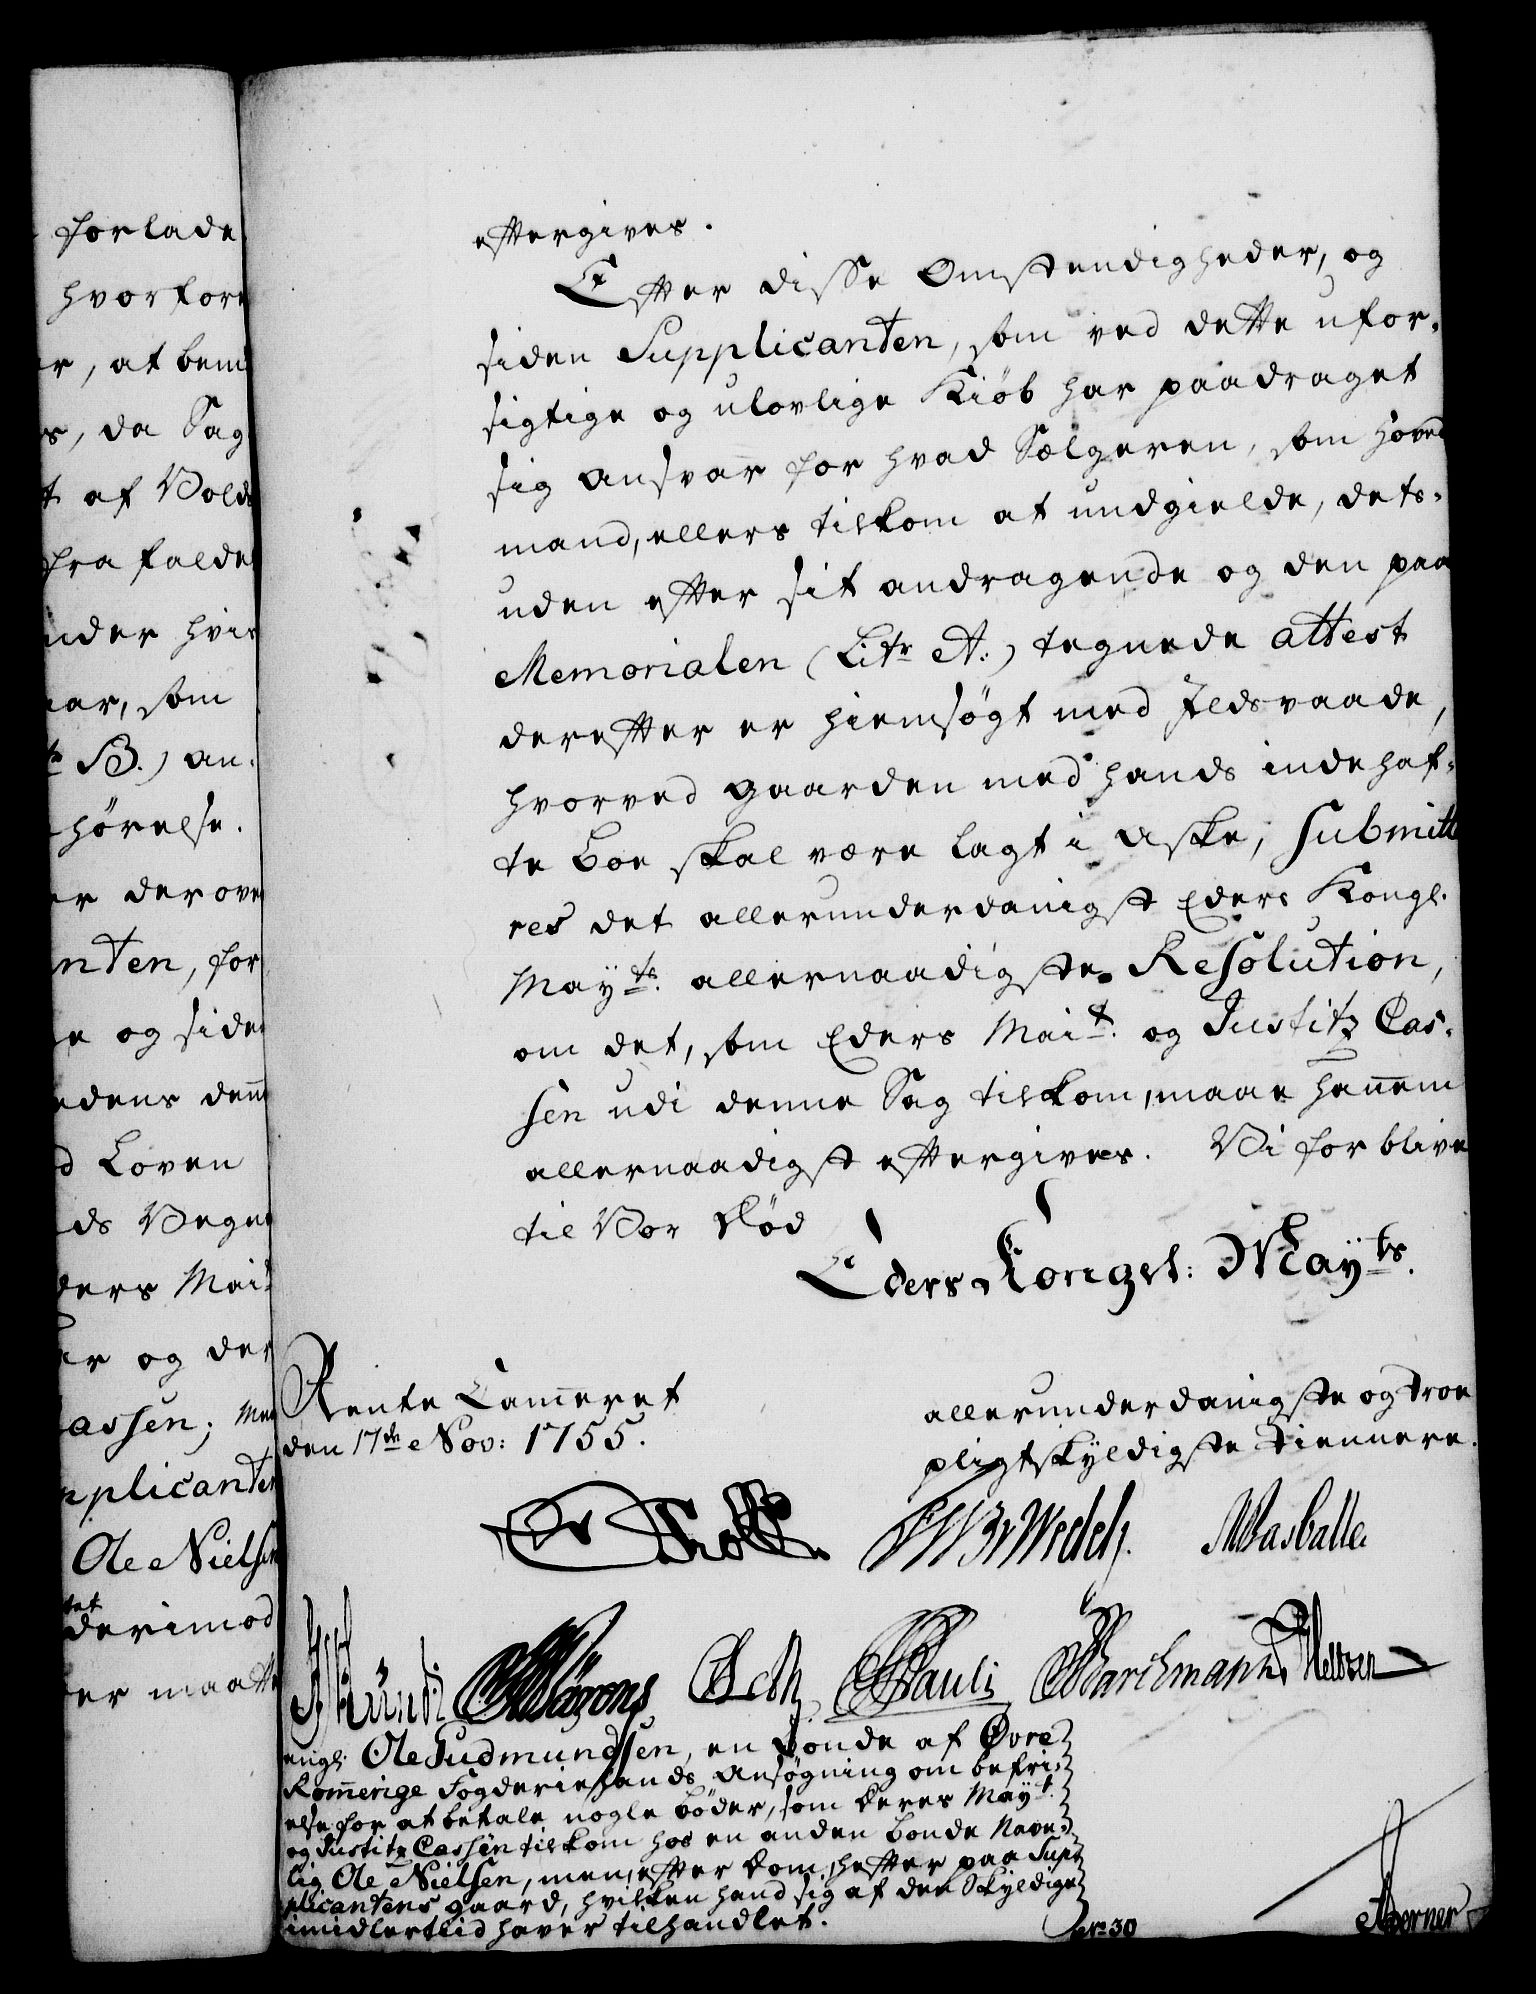 forlade
hvorfore
r, at bem
s, da Sag
t af Volds
fra falde
nder hvis
aar, som
B.) an-
hørelse.
er derove
nten, for
e og siden
edens den
d Loven
ds Vegne
ders Mait
er og der
assen; Men
pplicanten
Ole Nielsen
tet
derimod
er maatte
eftergives.
Efter disse Omstendigheder, og
siden Supplicanten, som ved dette ufor-
sigtige og ulovlige Kiøb har paadraget
sig ansvar for hvad Sælgeren, som Hoved
mand, ellers tilkom at undgielde, des-
uden efter sit andragende og den paa
Memorialen (Litr A.) tegnede attest
derefter er hiemsøgt med Ildsvaade,
hvorved gaarden med hands indehaf-
te boe skal være lagt i Aske, submitte
res det allerunderdanigst Eders Kongl.
Mayts. allernaadigste Resolution,
om det, som Eders Mait. og Justitz Cas-
sen udi denne Sag tilkom, maae hannem
allernaadigst eftergives. Vi forblive
til Vor Død
Eders Kongel: Mayts.
Rente Cameret
den 17de Nov: 1755.
allerunderdanigste og troe
pligtskyldigste tiennere.
Pauli Barchmann
angl. Ole Gudmundsen, en bonde af Øvre
Romerige Fogderie hands Ansøgning om befri-
else for at betale nogle bøder, som Deres Mayt.
og Justitz Cassen tilkom hos en anden bonde Navn-
lig Ole Nielsen, men efter Dom hefter paa Sup-
plicantens gaard, hvilken hand sig af den Skyldige
imidlertid haver tilhandlet.
No 30